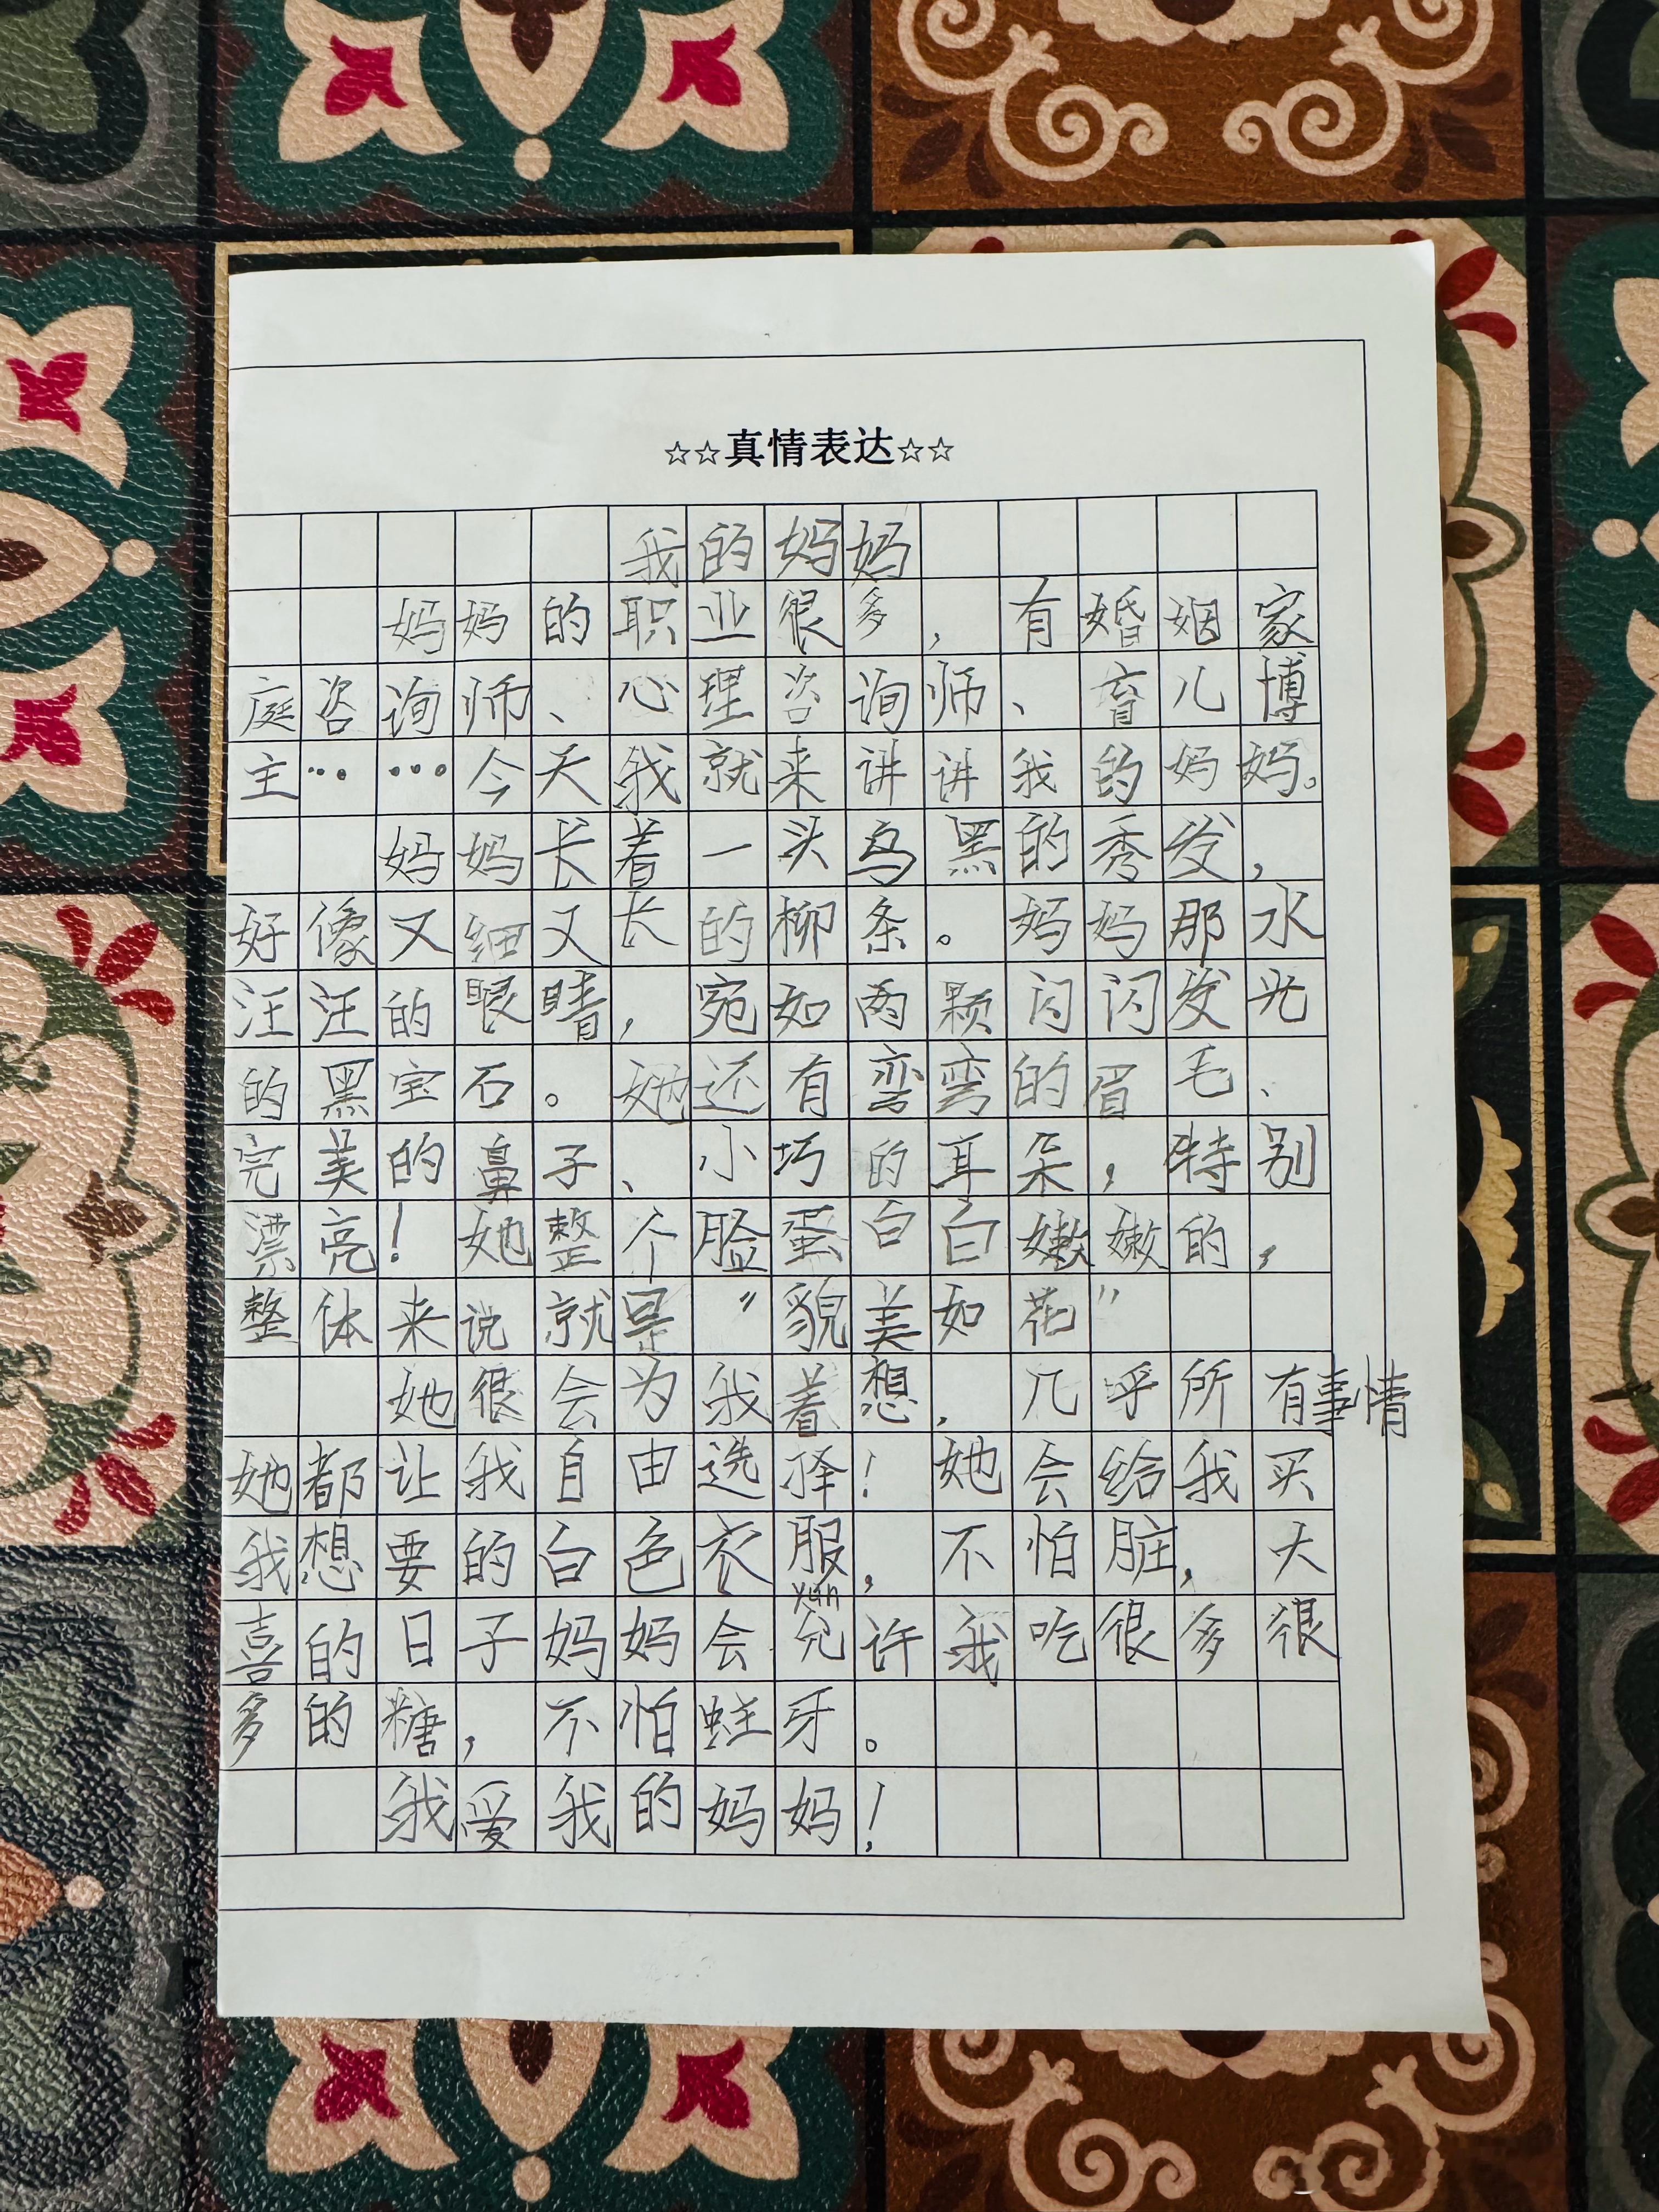 ☆☆真情表达☆☆
我的妈妈
妈妈的职业很多，有婚姻家
庭咨询师、心理咨询师、育儿博
主……今天我就来讲讲我的妈妈。
妈妈长着一头乌黑的秀发，
好像又细又长的柳条。妈妈那水
汪汪的眼睛，宛如两颗闪闪发光
的黑宝石。她还有弯弯的眉毛、
完美的鼻子、小巧的耳朵，特别
漂亮！她整个脸蛋白白嫩嫩的，
整体来说就是“貌美如花”
她很会为我着想，几乎所有事情
她都让我自由选择！她会给我买
我想要的白色衣服，不怕脏，大
yǔn
喜的日子妈妈会允许我吃很多很
多的糖，不怕蛀牙。
我爱我的妈妈！